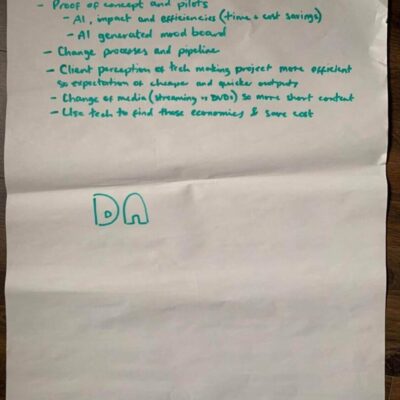 - Proof of concept and pilots
- AI, impact and efficiencies (time + cost savings)
- AI generated mood board
- Change processes and pipeline
- Client perception of tech making project more efficient
so expectation of cheaper and quicker outputs
- Change of media (streaming vs DVDs) so more short content
- Use tech to find these economies & save cost
DA